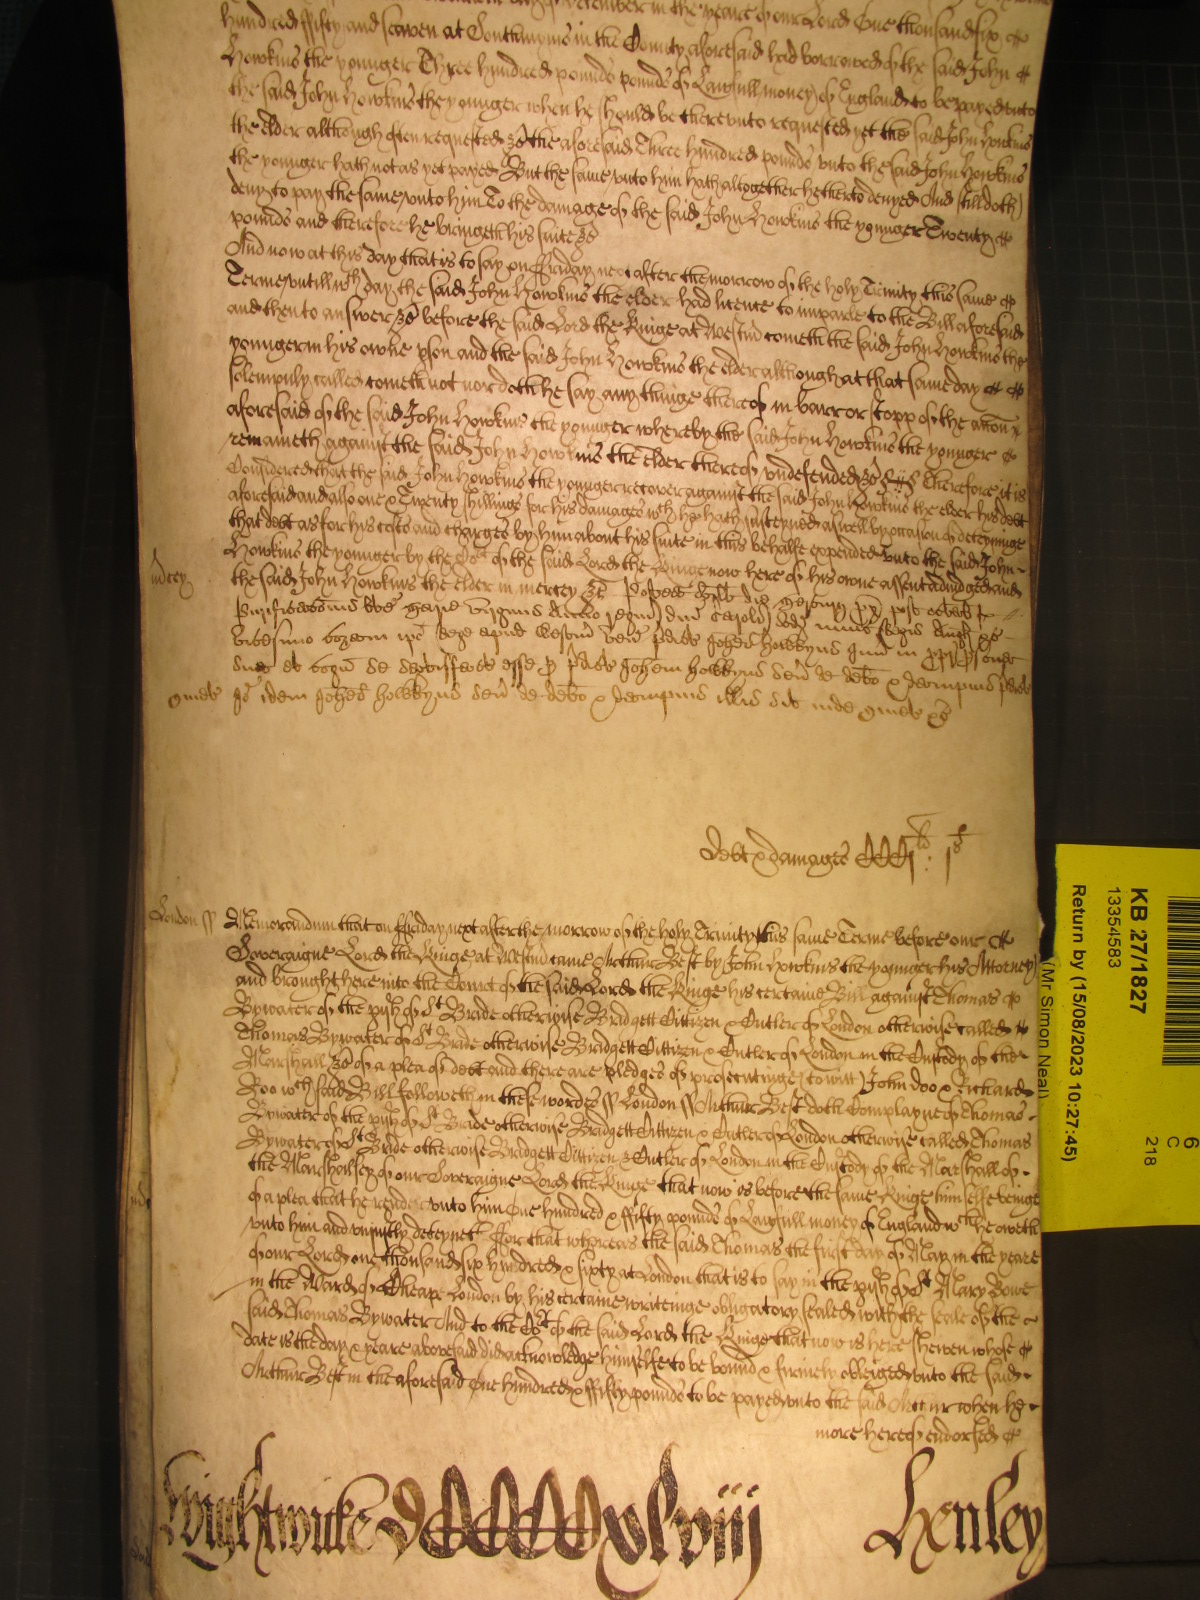 hundred ffifty and seaven at Douthmouis in the County aforesaid had borrowed of the said John
Howkins the younger Three hundred pounds pounds of Lawfull money of England to be payed unto
the said John Howkins the younger when he should be thereunto requested yet the said John Howkins
the elder although often requested &c the aforesaid Three hundred pounds unto the said John Howkins
the younger hath not as yet payed But the same unto him hath altogether hetherto denyed And still doth
deny to pay the same unto him To the damage of the said John Howkins the younger Twenty
pounds and therefore he bringeth his suite &c
And now at this day that is to say on ffriday next after the morrow of the holy Trinity this same
Terme untill wch day the said John Howkins the elder had licence to imparle to the Bill aforesaid
and then to answer &c before the said Lord the Kinge at Westm cometh the said John Howkins the
younger in his owne pson and the said John Howkins the elder although at that same day
solempnly called cometh not nor doth he say any thinge thereof in barr or stopp of the accon
aforesaid of the said John Howkins the younger whereby the said John Howkins the younger
remaineth against the said John Howkins the elder thereof undefended &c Therefore it is
Considered that the said John Howkins the younger recover against the said John Howkins the elder his debt
aforesaid and also one & Twenty shillings for his damages wch he hath susteyned aswell by occasion of deteyninge
that debt as for his costs and charges by him about his suite in this behalfe expended unto the said John
Howkins the younger by the Cort of the said Lord the Kinge now here of his owne assent adiudged and
mercy
the said John Howkins the elder in mercy &c Postea scilt die px post
Purificacois be Marie virginis Anno regni dni Caroli sedi nunc Regis Angl &c
vicesimo coram ipo Rege apud Westm ven pdict Johes Howkyns jun in
et cogn se satisffact esse p pdict Johem Howkyns sen de debo & dampnis pdict
quiet
Io idem Johes Howkyns sen de debo & dampnis illis sit inde quiet &c
Debt & damages CCCj li : js
London ss
Memorandum that on ffriday next after the morrow of the holy Trinity this same Terme before our
Soveraigne Lord the Kinge at Westm came Arthur Best by John Howkins the younger his Attorney
and brought here into the Court of the said Lord the Kinge his certaine Bill against Thomas
Bywater of the pish of St Bride otherwise Bridgett Cittizen & Cutler of London otherwise called
Thomas Bywater of St Bride otherwise Bridgett Cittizen & Cutler of London in the Custody of the
Marshall &c of a plea of debt and there are pledges of prosecutinge (to witt) John Doo & Richard
Roo wch said Bill followeth in these wordes ss London ss Arthur Best doth Complayne of Thomas
Bywater of the pish of St Bride otherwise Bridgett Cittizen & Cutler of London otherwise called Thomas
Bywater of St Bride otherwise Bridgett Cittizen & Cutler of London in the Custody of the Marshall of
the Marshalsey of our Soveraigne Lord the Kinge that now is before the same Kinge himselfe beinge
of a plea that he render unto him One hundred & ffifty pounds of Lawfull money of England wch he oweth
unto him and uniustly deteyneth ffor that whereas the said Thomas the first day of May in the yeare
of our Lord one thousand six hundred & sixty at London that is to say in the pish of St Mary Bowe
in the Ward of Cheape London by his certaine writeinge obligatory sealed with the seale of the
said Thomas Bywater And to the Cort of the said Lord the Kinge that now is here shewen whose
date is the day & yeare abovesaid did acknowledge himselfe to be bound & firmely obleiged unto the said
Arthur Best in the aforesaid One hundred & ffifty pounds to be payed unto the said Arthur when he
more hereof endorsed
Wightwicke DCCCCxlviij Henley
KB 27/1827
13354583
Return by (15/08/2023 10:27:45)
(Mr Simon Neal)
6
C
218